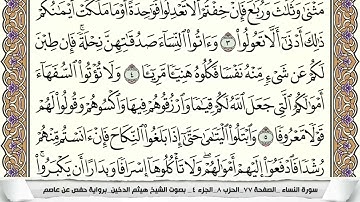 مَثۡنَىٰ وَثُلَٰثَ وَرُبَٰعَۖ فَإِنۡ خِفۡتُمۡ أَلَّا تَعۡدِلُواْ فَوَٰحِدَةً أَوۡ مَا مَلَكَتۡ أَيۡمَٰنُكُمۡۚ
ذَٰلِكَ أَدۡنَىٰٓ أَلَّا تَعُولُواْ ٣ وَءَاتُواْ ٱلنِّسَآءَ صَدُقَٰتِهِنَّ نِحۡلَةٗۚ فَإِن طِبۡنَ
لَكُمۡ عَن شَيۡءٖ مِّنۡهُ نَفۡسٗا فَكُلُوهُ هَنِيٓـٔٗا مَّرِيٓـٔٗا ٤ وَلَا تُؤۡتُواْ ٱلسُّفَهَآءَ
أَمۡوَٰلَكُمُ ٱلَّتِي جَعَلَ ٱللَّهُ لَكُمۡ قِيَٰمٗا وَٱرۡزُقُوهُمۡ فِيهَا وَٱكۡسُوهُمۡ وَقُولُواْ لَهُمۡ
قَوۡلٗا مَّعۡرُوفٗا ٥ وَٱبۡتَلُواْ ٱلۡيَتَٰمَىٰ حَتَّىٰٓ إِذَا بَلَغُواْ ٱلنِّكَاحَ فَإِنۡ ءَانَسۡتُم مِّنۡهُمۡ
رُشۡدٗا فَٱدۡفَعُوٓاْ إِلَيۡهِمۡ أَمۡوَٰلَهُمۡۖ وَلَا تَأۡكُلُوهَآ إِسۡرَافٗا وَبِدَارًا أَن يَكۡبَرُواْۚ
سورة النساء _الصفحة ٧٧_الحزب ٨_الجزء ٤_ بصوت الشيخ هيثم الدخين_برواية حفص عن عاصم